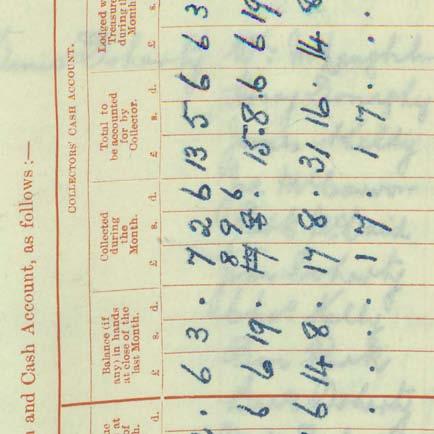 and Cash Account, as follows :—
COLLECTORS' CASH ACCOUNT.
Balance (if
any) in hands
at close of the
last Month.
Collected
during
the
Month.
Total to
be accounted
for by
Collector.
Lodged
during
Month.
d. £ s. d. £ s. d. £ s. d. £ s.
. 6 3 . 7 2 6 13 5 6 6 3
6 6 19 . 8 9 6 15 8 6 6 19
6 14 8 . 17 8 . 31 16 . 14 8
. . . . 1 7 . 1 7 . . .